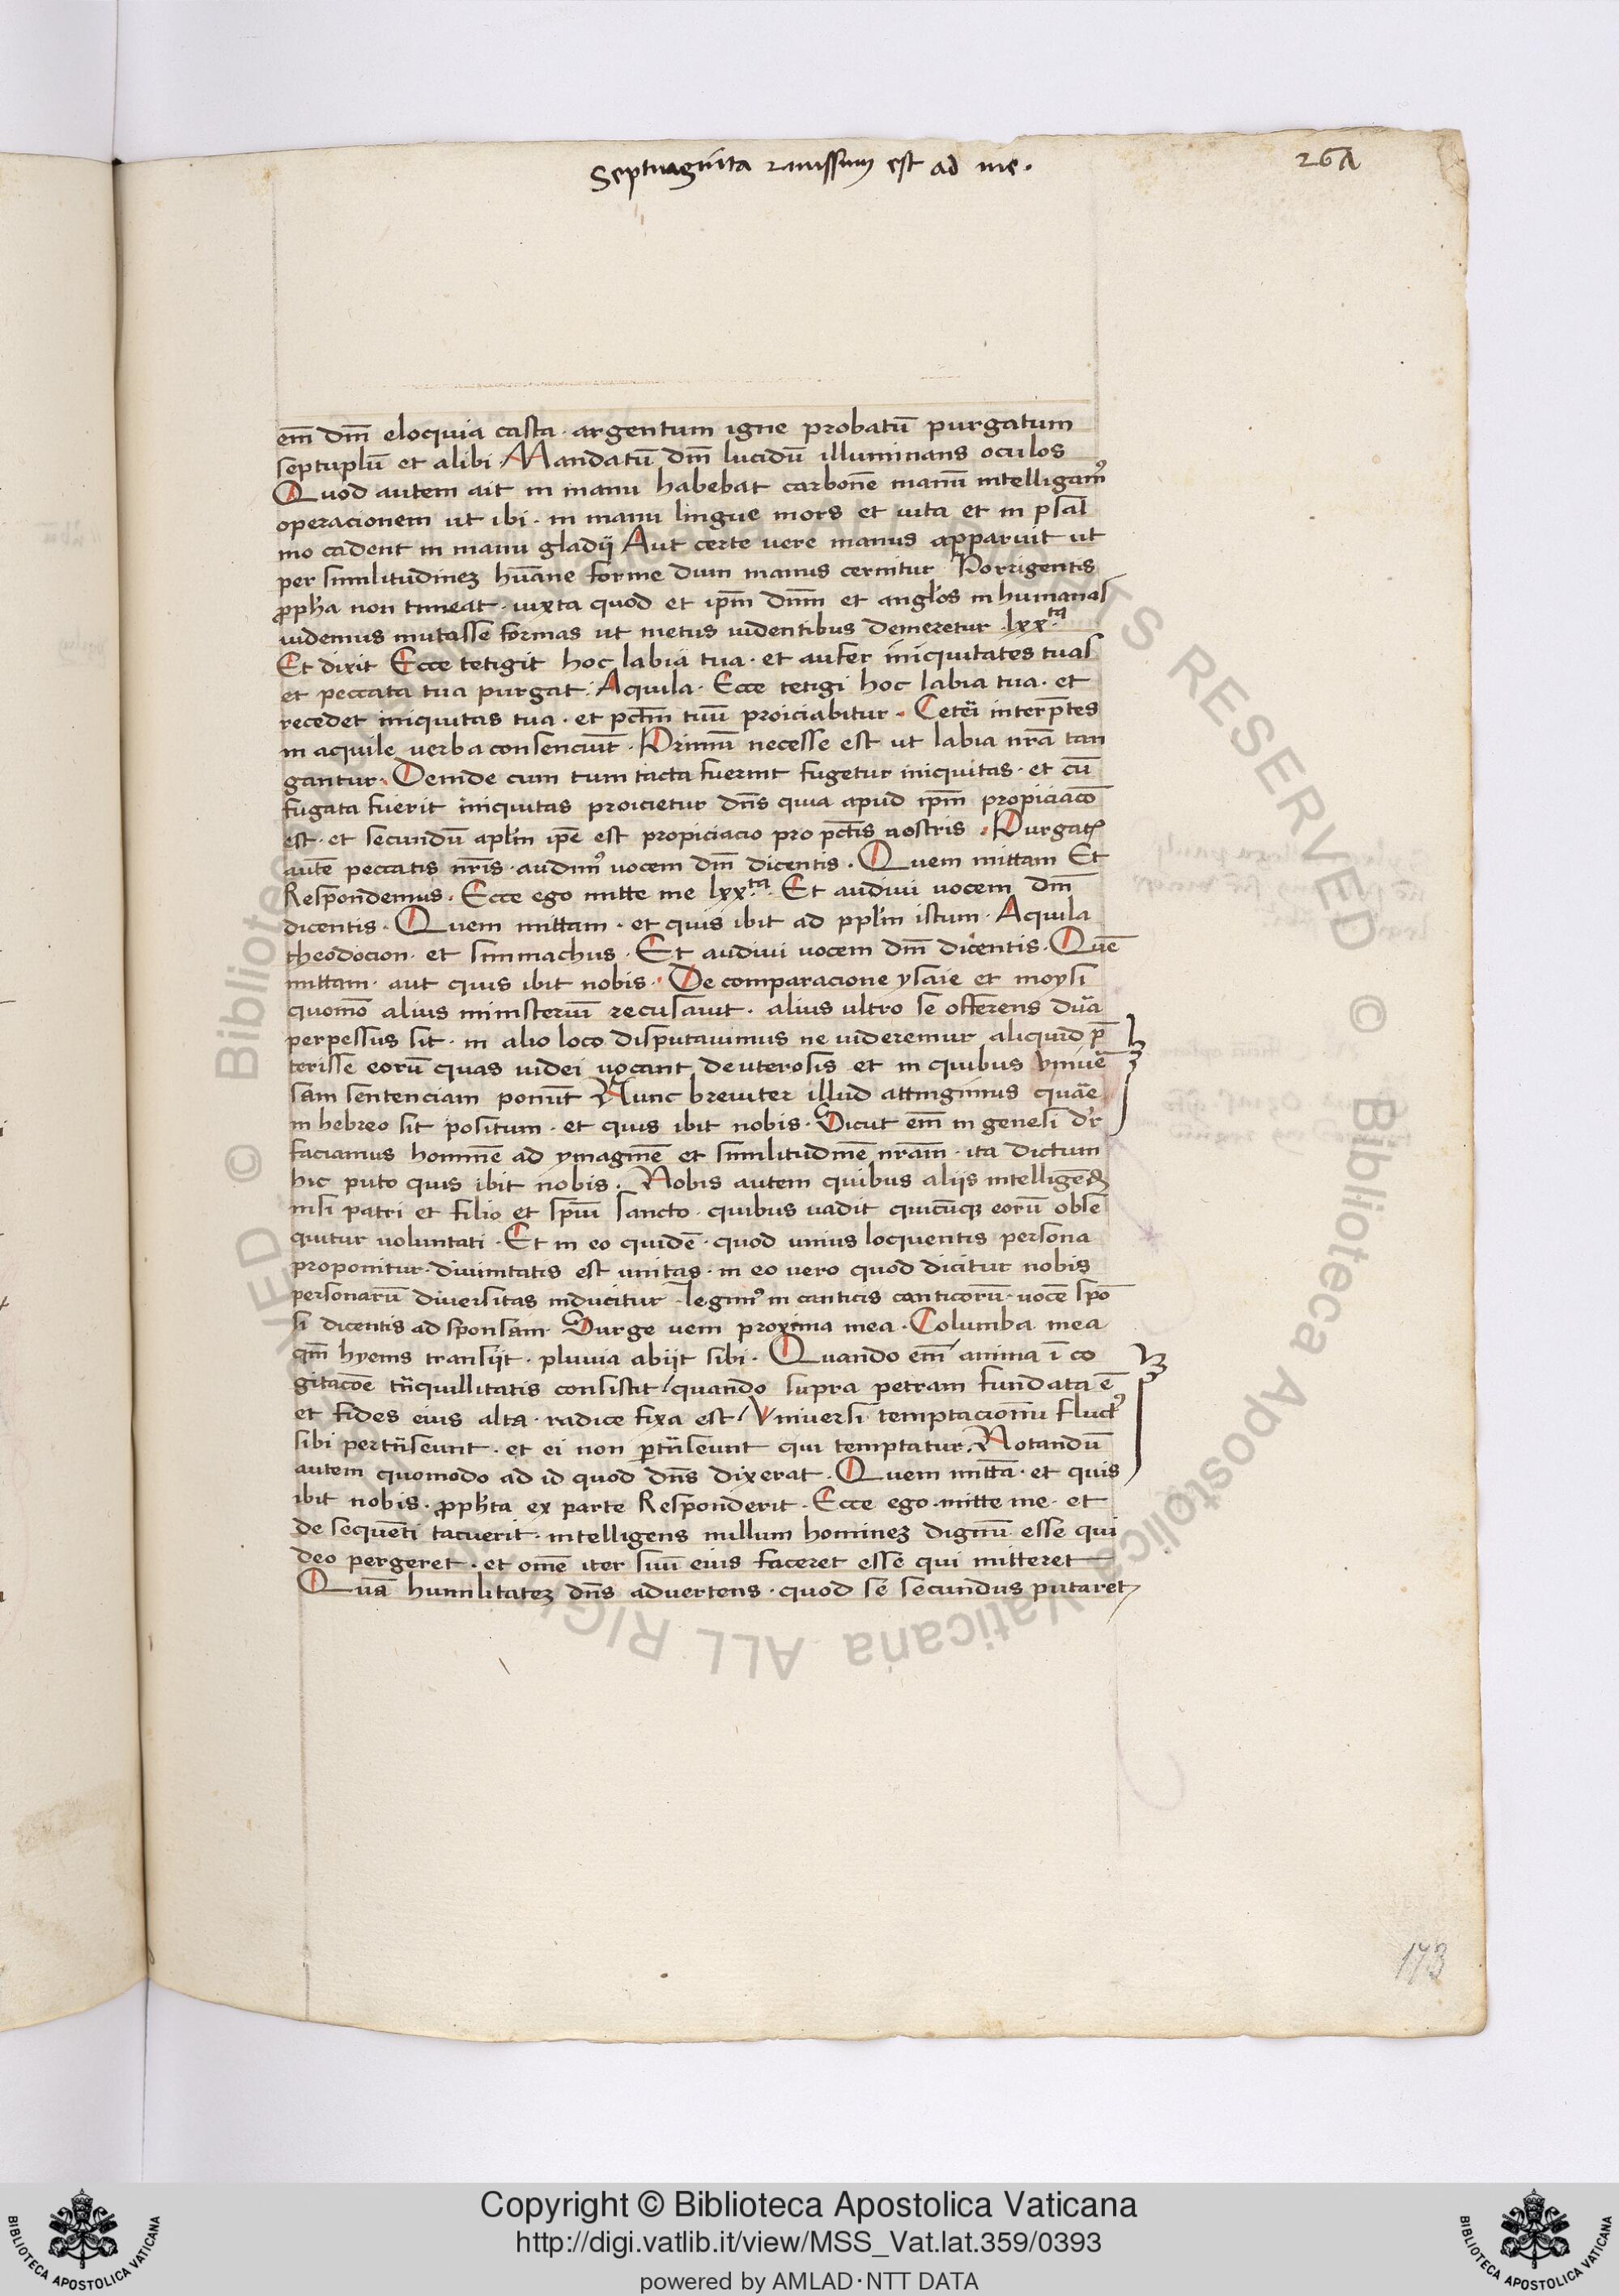 Septuaginta et missum est ad me.
261
em̅ dm̅ eloquia casta · argentum igne probatu̅ purgatum
septuplu̅ et alibi · Mandatu̅ dm̅ lucidu̅ illuminans oculos
Quod autem ait in manu habebat carbone̅ manu̅ intelligamꝰ
operacionem ut ibi · in manu lingue mors et uita et in psal
mo cadent in manu gladij Aut certe uere manus apparuit ut
per similitudinez hu̅ane forme dum manus cernitur Porrigentis
ꝓph̅a non timeat · iuxta quod et ip̅m dn̅m et angl̅os in humanas
uidemus mutasse formas ut metus uidentibus demeretur · lxx.ta
Et dixit Ecce tetigit hoc labia tua · et aufer iniquitates tuas
et peccata tua purgat · Aquila · Ecce tetigi hoc labia tua · et
recedet iniquitas tua · et pctm̅ tuu̅ proiciabitur · Ceteri interp̅tes
in aquile uerba consenciu̅t · Primu̅ necesse est ut labia nr̅a tan
gantur · Deinde cum tum tacta fuerint fugetur iniquitas · et cu̅
fugata fuerit iniquitas proicietur dn̅s quia apud ip̅m propiciaco̅
est · et secundu̅ apl̅m ip̅e est propiciacio pro pctis̅ nostris · Purgatꝭ
aute̅ peccatis nr̅is · audimꝰ uocem dm̅ dicentis · Quem mittam Et
Respondemus · Ecce ego mitte me lxx.ta Et audiui uocem dm̅
dicentis · Quem mittam · et quis ibit ad ppl̅m istum · Aquila
theodocion · et simmachus · Et audiui uocem dm̅ dicentis · Que̅
mittam · aut quis ibit nobis · De comparacione ysaie et moysi
quomo̅ alius ministeriu̅ recusauit · alius ultro se offerens dura
perpessus sit · in alio loco disputauimus ne uideremur aliquid p̅
terisse eoru̅ quas iudei uocant deuterosis et in quibus vniue̅
sam sentenciam ponu̅t Nunc breuiter illud attingimus quare
in hebreo sit positum · et quis ibit nobis · Sicut em̅ in genesi dr̅
faciamus homine̅ ad ymagine̅ et similitudine̅ nr̅am · ita dictum
hic puto quis ibit nobis · Nobis autem quibus aliis intelligend̅
nisi patri et filio et spiu̅ sancto · quibus uadit quicu̅qz eoru̅ obse
quitur uoluntati · Et in eo quide̅ · quod unius loquentis persona
proponitur · diuinitatis est unitas · in eo uero quod dicitur nobis
personaru̅ diuersitas inducitur · legimꝰ in canticis canticoru̅ · uoce̅ spo̅
si dicentis ad sponsam · Surge ueni proxima mea · Columba mea
qm̅ hyems transijt · pluuia abijt sibi · Quando em̅ anima i̅ co
gitaco̅e tn̅quillitatis consistit / quando supra petram fundata e̅
et fides eius alta · radice fixa est / Vniuersi temptacionu̅ fluctꝰ
sibi pertn̅seunt · et ei non p̅tn̅seunt qui temptatur · Notandu̅
autem quomodo ad id quod dn̅s dixerat · Quem mitta̅ · et quis
ibit nobis · ꝓph̅ta ex parte Responderit · Ecce ego · mitte me · et
de seque̅ti tacuerit · intelligens nullum hominez dignu̅ esse qui
deo pergeret · et om̅e iter suu̅ eius faceret esse qui mitteret
Qua̅ humilitatez dn̅s aduertens · quod se secundus putaret
173
© Biblioteca Apostolica Vaticana ALL RIGHTS RESERVED
Copyright © Biblioteca Apostolica Vaticana
http://digi.vatlib.it/view/MSS_Vat.lat.359/0393
powered by AMLAD·NTT DATA
BIBLIOTECA APOSTOLICA VATICANA
BIBLIOTECA APOSTOLICA VATICANA